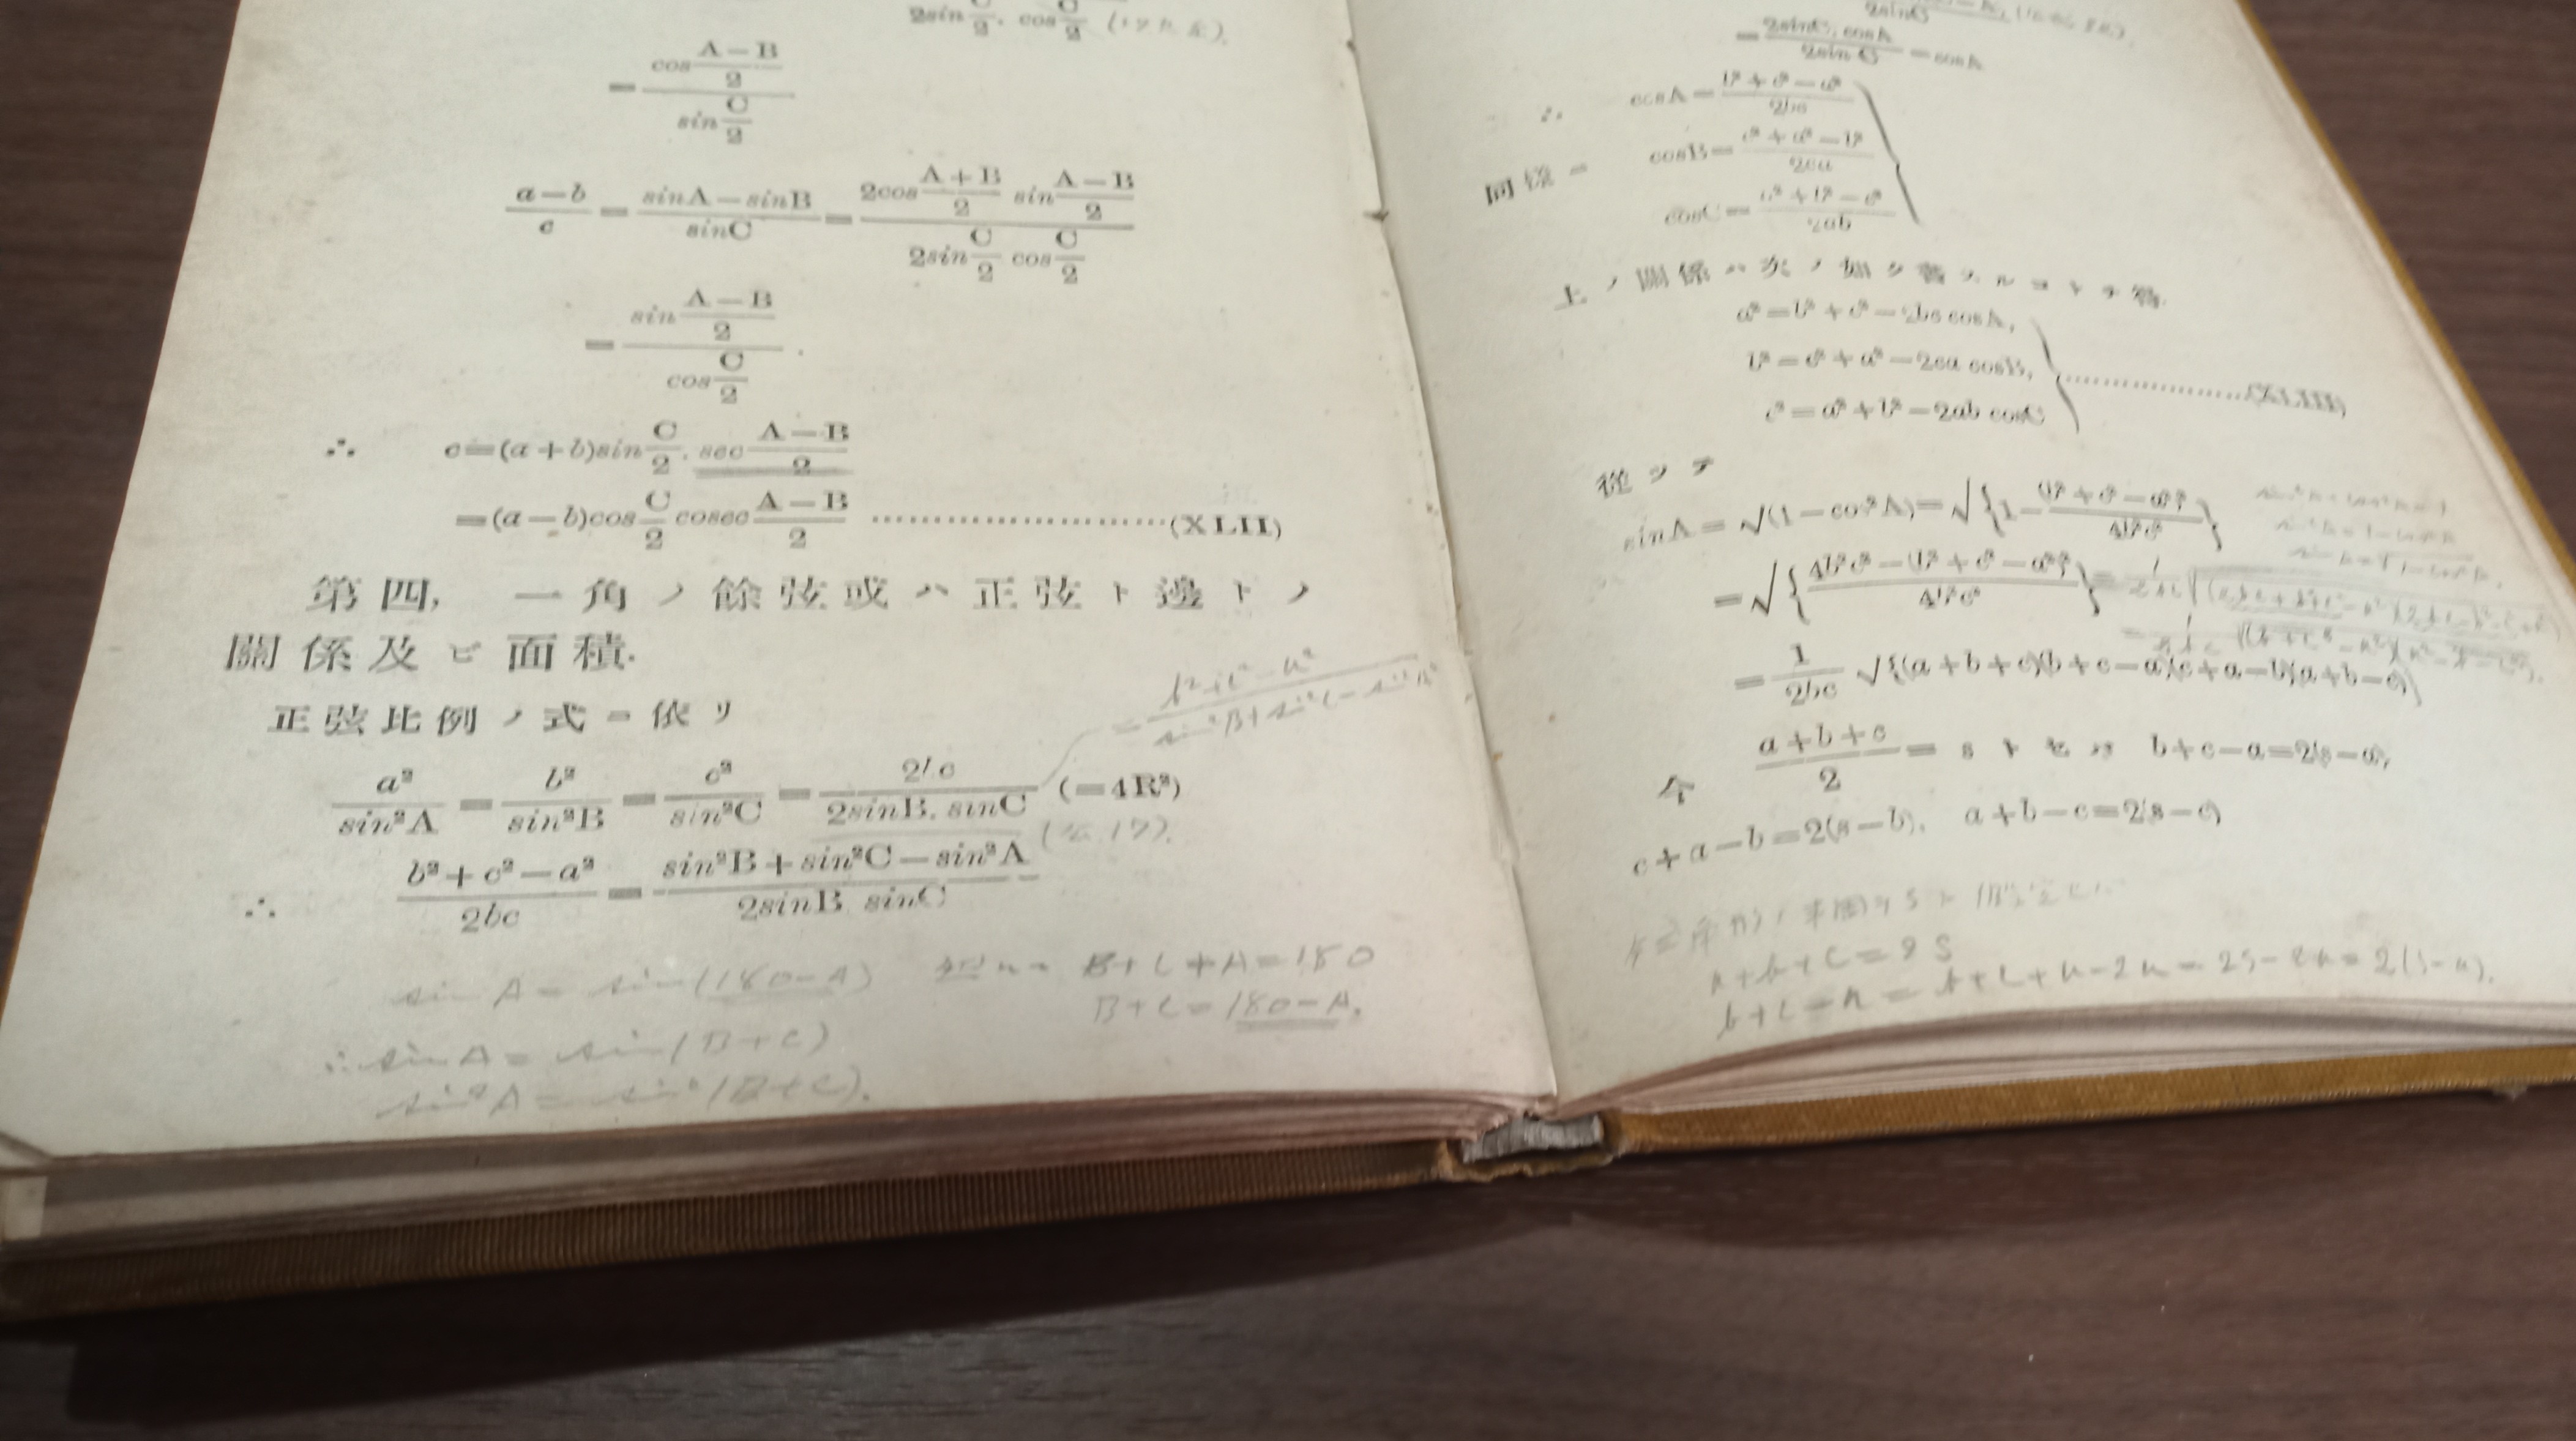 2sin C/2 . cos C/2
= cos (A−B)/2 / sin C/2
(a−b)/c = (sinA−sinB)/sinC = 2cos (A+B)/2 sin (A−B)/2 / 2sin C/2 cos C/2
= sin (A−B)/2 / cos C/2 .
∴ c=(a+b)sin C/2 . sec (A−B)/2
=(a−b)cos C/2 cosec (A−B)/2 ........................(XLII)
第四, 一角ノ餘弦或ハ正弦ト邊トノ
關係及ビ面積.
正弦比例ノ式ニ依リ
= (b²+c²−a²)/(sin²B+sin²C−sin²A)
a²/sin²A = b²/sin²B = c²/sin²C = 2bc/(2sinB. sinC) (=4R²)
∴ (b²+c²−a²)/2bc = (sin²B+sin²C−sin²A)/(2sinB sinC)
sin A = sin(180−A) B+C+A=180
B+C=180−A.
∴ sin A = sin(B+C)
sin²A = sin²(B+C).
= 2sinC. cosA / 2sin C = cosA
∴ cosA= (b²+c²−a²)/2bc
同樣ニ cosB= (c²+a²−b²)/2ca
cosC= (a²+b²−c²)/2ab
上ノ關係ハ次ノ如ク書クコトヲ得.
a²=b²+c²−2bc cosA,
b²=c²+a²−2ca cosB,
c²=a²+b²−2ab cosC ..................(XLIII)
從ツテ
sinA=√(1−cos²A)=√{1−(b²+c²−a²)²/4b²c²}
=√{(4b²c²−(b²+c²−a²)²)/4b²c²}
= 1/2bc √{(a+b+c)(b+c−a)(c+a−b)(a+b−c)}
今 (a+b+c)/2 = s トセバ b+c−a=2(s−a),
c+a−b=2(s−b), a+b−c=2(s−c)
a+b+c=2S
b+c−a=b+c+a−2a=2s−2a=2(s−a).